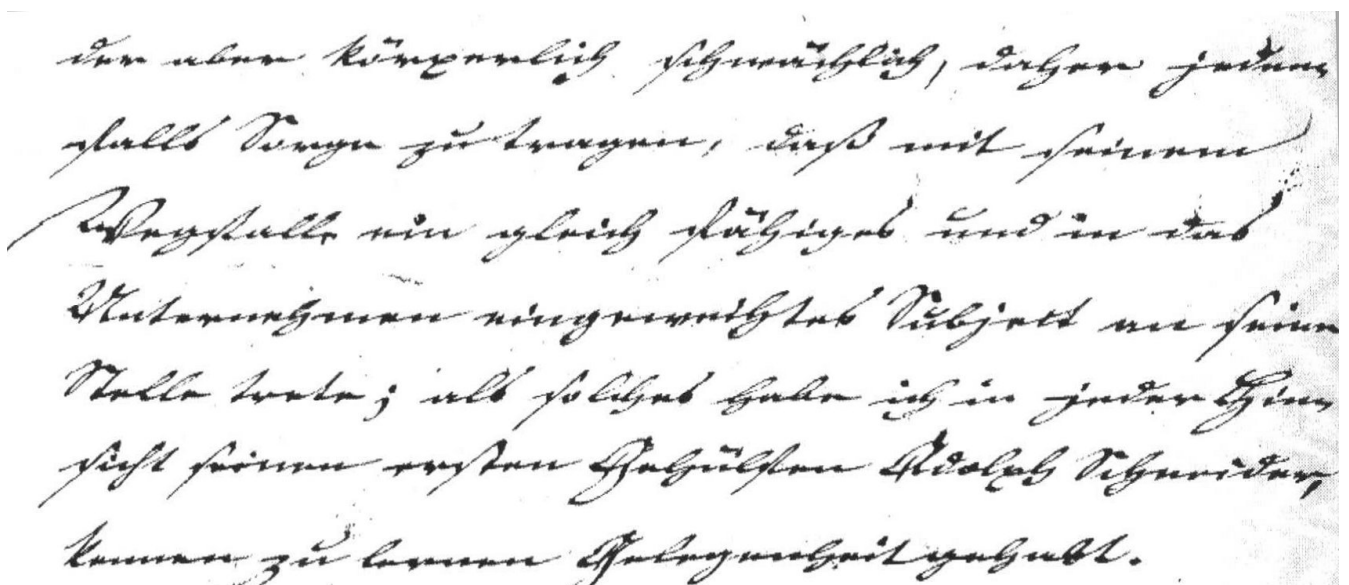 der aber körperlich schwächlich, daher jeden-
falls Sorge zu tragen, daß mit seinem
Wegfalle ein gleich fähiges und in das
Unternehmen eingeweihtes Subject an seine
Stelle trete; als solches habe ich in jeder Hin-
sicht seinen ersten Gehülfen Adolph Schneider,
kennen zu lernen Gelegenheit gehabt.